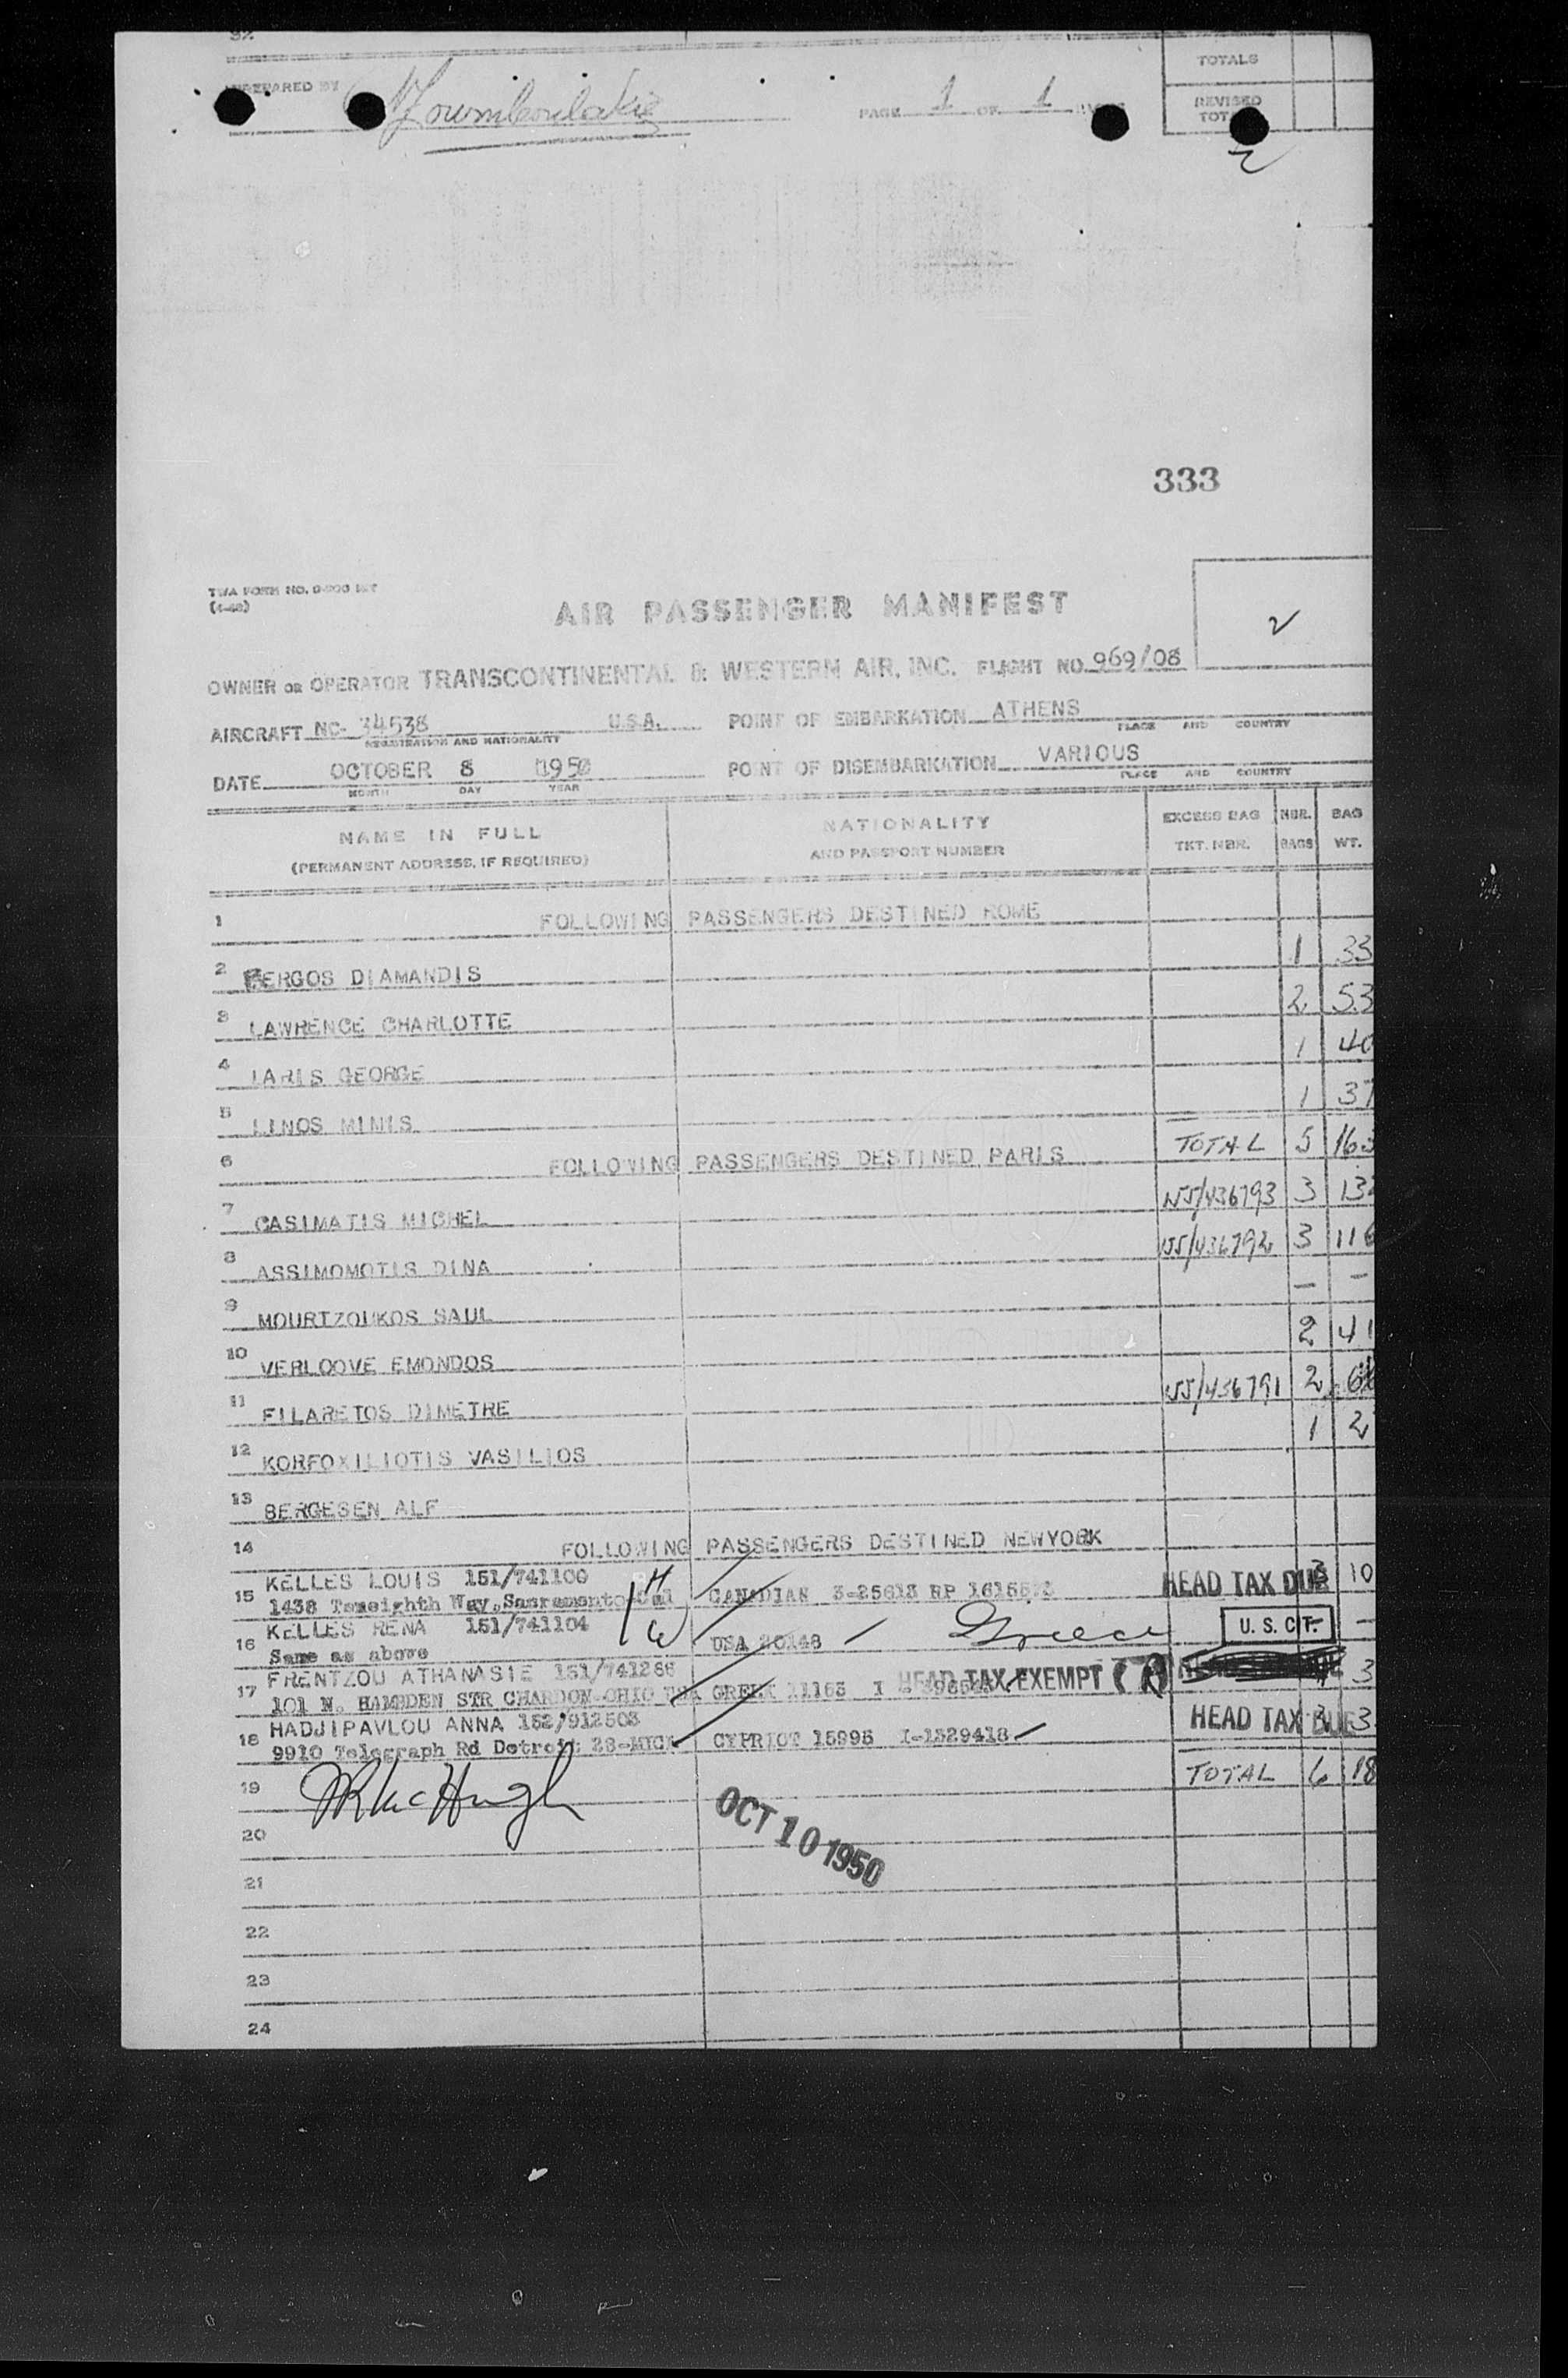 32
PREPARED BY Zoumboulakis PAGE 1 OF 1
TOTALS
REVISED
2
333
TWA FORM NO.
(4-48)
AIR PASSENGER MANIFEST
OWNER OR OPERATOR TRANSCONTINENTAL & WESTERN AIR, INC. FLIGHT NO. 969/08
AIRCRAFT NC- 34538 U.S.A. POINT OF EMBARKATION ATHENS
REGISTRATION AND NATIONALITY PLACE AND COUNTRY
DATE OCTOBER 8 1950 POINT OF DISEMBARKATION VARIOUS
MONTH DAY YEAR PLACE AND COUNTRY
NAME IN FULL NATIONALITY EXCESS BAG NBR. BAG
(PERMANENT ADDRESS, IF REQUIRED) AND PASSPORT NUMBER TKT. NBR. BAGS WT.
1 FOLLOWING PASSENGERS DESTINED ROME
2 BERGOS DIAMANDIS 1 33
3 LAWRENCE CHARLOTTE 2 53
4 IARIS GEORGE 1 40
5 LINOS MINIS 1 37
6 FOLLOWING PASSENGERS DESTINED PARIS TOTAL 5 163
7 CASIMATIS MICHEL 3
8 ASSIMOMOTIS DINA 3 116
9 MOURTZOUKOS SAUL — —
10 VERLOOVE EMONDOS 2 41
11 FILARETOS DIMETRE 2
12 KORFOXILIOTIS VASILIOS 1 2
13 BERGESEN ALF
14 FOLLOWING PASSENGERS DESTINED NEWYORK
KELLES LOUIS 151/741100 H
15 1438 Temeighth Way,Sacramento Cal CANADIAN 3-25613 RP HEAD TAX DUE 3 10
KELLES RENA 151/741104 W
16 Same as above USA 20148 Greece U. S. CIT. —
FRENTZOU ATHANASIE 151/741286
17 101 N. HAMBDEN STR CHARDON OHIO USA GREEK 11163 I HEAD TAX EXEMPT 3
HADJIPAVLOU ANNA 152/912503
18 9910 Telegraph Rd Detroit 28-MICH CYPRIOT 15995 I-1329418 HEAD TAX DUE 3
19 JR McHugh TOTAL 6 18
OCT 10 1950
20
21
22
23
24